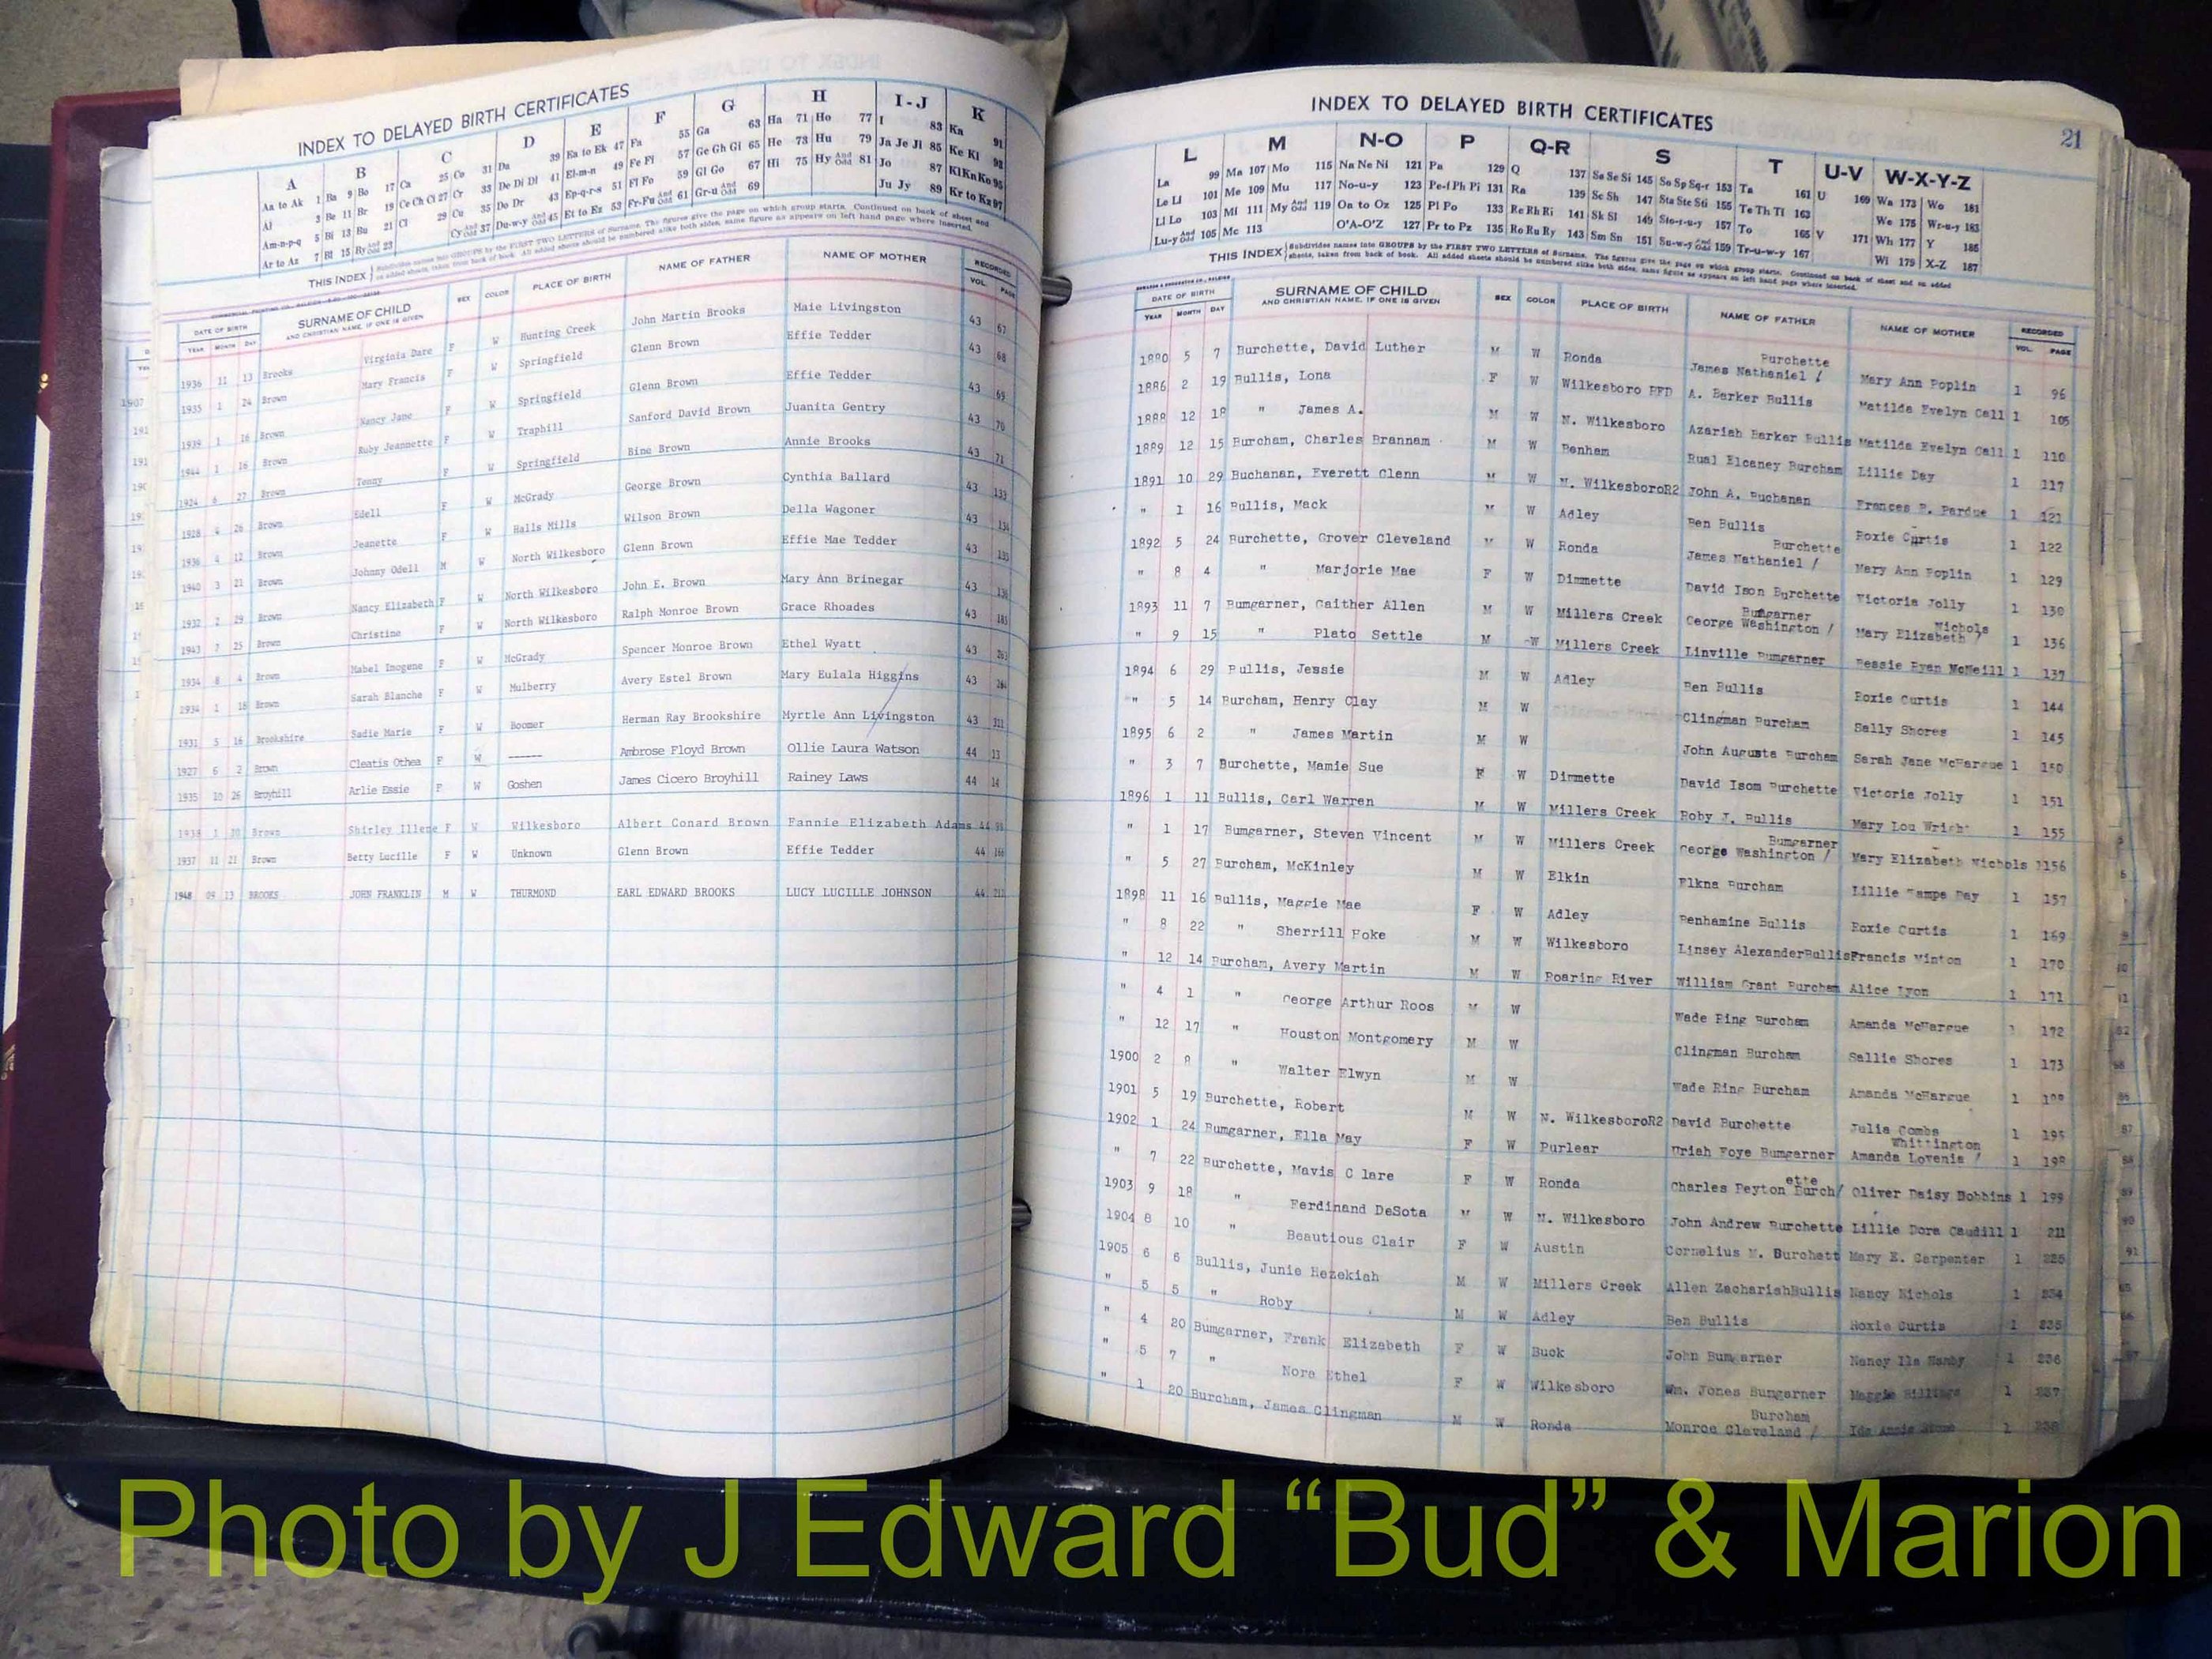 INDEX TO DELAYED BIRTH CERTIFICATES
A B C D E F G H I-J K
Aa to Ak 1 Ba 9 Bo 17 Ca 25 Co 31 Da 39 Ea to Ek 47 Fa 55 Ga 63 Ha 71 Ho 77 I 83 Ka 91
Al 3 Be 11 Br 19 Ce Ch Ci 27 Cr 33 De Di Dl 41 El-m-n 49 Fe Fi 57 Ge Gh Gi 65 He 73 Hu 79 Ja Je Ji 85 Ke Ki 93
Am-n-p-q 5 Bi 13 Bu 21 Cl 29 Cu 35 Do Dr 43 Ep-q-r-s 51 Fl Fo 59 Gl Go 67 Hi 75 Hy And Odd 81 Jo 87 Kl Kn Ko 95
Ar to Az 7 Bl 15 By And Odd 23 Cy And Odd 37 Du-w-y And Odd 45 Et to Ez 53 Fr-Fu And Odd 61 Gr-u And Odd 69 Ju Jy 89 Kr to Kz 97
THIS INDEX Subdivides names into GROUPS by the FIRST TWO LETTERS of Surname. The figures give the page on which group starts. Continued on back of sheet and
on added sheets, taken from back of book. All added sheets should be numbered alike both sides, same figure as appears on left hand page where inserted.
DATE OF BIRTH SURNAME OF CHILD SEX COLOR PLACE OF BIRTH NAME OF FATHER NAME OF MOTHER RECORDED
YEAR MONTH DAY AND CHRISTIAN NAME, IF ONE IS GIVEN VOL. PAGE
1936 11 13 Brooks Virginia Dare F W Hunting Creek John Martin Brooks Maie Livingston 43 67
1935 1 24 Brown Mary Francis F W Springfield Glenn Brown Effie Tedder 43 68
1939 1 16 Brown Nancy Jane F W Springfield Glenn Brown Effie Tedder 43 69
1944 1 16 Brown Ruby Jeannette F W Traphill Sanford David Brown Juanita Gentry 43 70
1924 6 27 Brown Tenny F W Springfield Bine Brown Annie Brooks 43 71
1928 4 26 Brown Edell F W McGrady George Brown Cynthia Ballard 43 133
1936 4 12 Brown Jeanette F W Halls Mills Wilson Brown Della Wagoner 43 134
1940 3 21 Brown Johnny Odell M W North Wilkesboro Glenn Brown Effie Mae Tedder 43 135
1932 2 29 Brown Nancy Elizabeth F W North Wilkesboro John E. Brown Mary Ann Brinegar 43 136
1943 7 25 Brown Christine F W North Wilkesboro Ralph Monroe Brown Grace Rhoades 43 185
1934 8 4 Brown Mabel Imogene F W McGrady Spencer Monroe Brown Ethel Wyatt 43 263
2934 1 18 Brown Sarah Blanche F W Mulberry Avery Estel Brown Mary Eulala Higgins 43 264
1931 5 16 Brookshire Sadie Marie F W Boomer Herman Ray Brookshire Myrtle Ann Livingston 43 311
1927 6 2 Brown Cleatis Othea F W ------ Ambrose Floyd Brown Ollie Laura Watson 44 13
1935 10 26 Broyhill Arlie Essie F W Goshen James Cicero Broyhill Rainey Laws 44 14
1938 1 20 Brown Shirley Illene F W Wilkesboro Albert Conard Brown Fannie Elizabeth Adams 44 98
1937 11 21 Brown Betty Lucille F W Unknown Glenn Brown Effie Tedder 44 166
1948 09 13 BROOKS JOHN FRANKLIN M W THURMOND EARL EDWARD BROOKS LUCY LUCILLE JOHNSON 44 212
INDEX TO DELAYED BIRTH CERTIFICATES 21
L M N-O P Q-R S T U-V W-X-Y-Z
La 99 Ma 107 Mo 115 Na Ne Ni 121 Pa 129 Q 137 Sa Se Si 145 So Sp Sq-r 153 Ta 161 U 169 Wa 173 Wo 181
Le Ll 101 Me 109 Mu 117 No-u-y 123 Pe-f Ph Pi 131 Ra 139 Sc Sh 147 Sta Ste Sti 155 Te Th Ti 163 We 175 Wr-u-y 183
Li Lo 103 Mi 111 My And Odd 119 Oa to Oz 125 Pl Po 133 Re Rh Ri 141 Sk Sl 149 Sto-r-u-y 157 To 165 V 171 Wh 177 Y 185
Lu-y And Odd 105 Mc 113 O'A-O'Z 127 Pr to Pz 135 Ro Ru Ry 143 Sm Sn 151 Su-w-y And Odd 159 Tr-u-w-y 167 Wi 179 X-Z 187
THIS INDEX Subdivides names into GROUPS by the FIRST TWO LETTERS of Surname. The figures give the page on which group starts. Continued on back of sheet and on added
sheets, taken from back of book. All added sheets should be numbered alike both sides, same figure as appears on left hand page where inserted.
DATE OF BIRTH SURNAME OF CHILD SEX COLOR PLACE OF BIRTH NAME OF FATHER NAME OF MOTHER RECORDED
YEAR MONTH DAY AND CHRISTIAN NAME, IF ONE IS GIVEN VOL. PAGE
1880 5 7 Burchette, David Luther M W Ronda James Nathaniel / Burchette Mary Ann Poplin 1 96
1886 2 19 Bullis, Lona F W Wilkesboro RFD A. Barker Bullis Matilda Evelyn Call 1 105
1888 12 18 " James A. M W N. Wilkesboro Azariah Barker Bullis Matilda Evelyn Call 1 110
1889 12 15 Burcham, Charles Brannam M W Benham Rual Elcaney Burcham Lillie Day 1 117
1891 10 29 Buchanan, Everett Glenn M W N. WilkesboroR2 John A. Buchanan Frances B. Pardue 1 121
" 1 16 Bullis, Mack M W Adley Ben Bullis Roxie Curtis 1 122
1892 5 24 Burchette, Grover Cleveland M W Ronda James Nathaniel / Burchette Mary Ann Poplin 1 129
" 8 4 " Marjorie Mae F W Dimmette David Ison Burchette Victoria Jolly 1 130
1893 11 7 Bumgarner, Gaither Allen M W Millers Creek George Washington / Bumgarner Mary Elizabeth / Nichols 1 136
" 9 15 " Plato Settle M W Millers Creek Linville Bumgarner Bessie Ryan McNeill 1 137
1894 6 29 Bullis, Jessie M W Adley Ben Bullis Roxie Curtis 1 144
" 5 14 Burcham, Henry Clay M W Clingman Burcham Sally Shores 1 145
1895 6 2 " James Martin M W John Augusta Burcham Sarah Jane McHargue 1 150
" 3 7 Burchette, Mamie Sue F W Dimmette David Isom Burchette Victoria Jolly 1 151
1896 1 11 Bullis, Carl Warren M W Millers Creek Roby J. Bullis Mary Lou Wright 1 155
" 1 17 Bumgarner, Steven Vincent M W Millers Creek George Washington / Bumgarner Mary Elizabeth Nichols 1156
" 5 27 Burcham, McKinley M W Elkin Elkna Burcham Lillie Tampe Day 1 157
1898 11 16 Bullis, Maggie Mae F W Adley Benhamine Bullis Roxie Curtis 1 169
" 8 22 " Sherrill Hoke M W Wilkesboro Linsey AlexanderBullis Francis Minton 1 170
" 12 14 Burcham, Avery Martin M W Roaring River William Grant Burcham Alice Lyon 1 171
" 4 1 " George Arthur Roos M W Wade Ring Burcham Amanda McHargue 1 172
" 12 17 " Houston Montgomery M W Clingman Burcham Sallie Shores 1 173
1900 2 8 " Walter Elwyn M W Wade Ring Burcham Amanda McHargue 1
1901 5 19 Burchette, Robert M W N. WilkesboroR2 David Burchette Julia Combs 1 195
1902 1 24 Bumgarner, Ella May F W Purlear Uriah Foye Bumgarner Amanda Lovenia / Whittington 1 198
" 7 22 Burchette, Mavis C lare F W Ronda Charles Peyton Burch/ ette Oliver Daisy Dobbins 1 199
1903 9 18 " Ferdinand DeSota M W N. Wilkesboro John Andrew Burchette Lillie Dora Caudill 1 211
1904 8 10 " Beautious Clair F W Austin Cornelius M. Burchett Mary E. Carpenter 1 225
1905 6 6 Bullis, Junie Hezekiah M W Millers Creek Allen ZachariahBullis Nancy Nichols 1 234
" 5 5 " Roby M W Adley Ben Bullis Roxie Curtis 1 235
" 4 20 Bumgarner, Frank Elizabeth F W Buck John Bumgarner Nancy Ila Hamby 1 236
" 5 7 " Nora Ethel F W Wilkesboro Wm. Jones Bumgarner Maggie Billings 1 237
" 1 20 Burcham, James Clingman M W Ronda Monroe Cleveland / Burcham Ida Annie Stone 1 238
Photo by J Edward “Bud” & Marion